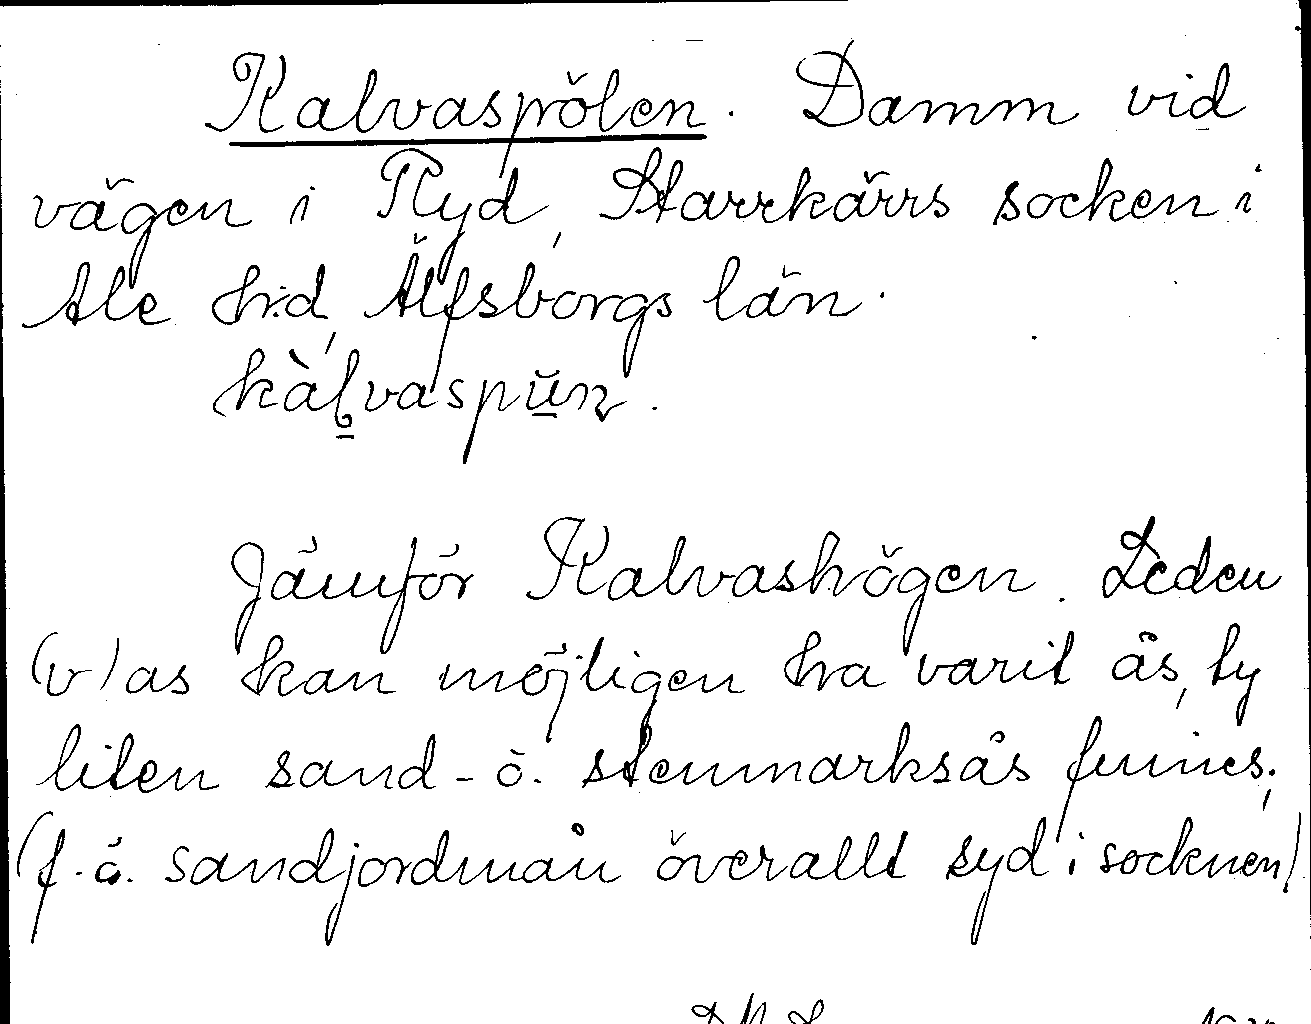 Kalvaspölen. Damm vid
vägen i Ryd, Starrkärrs socken i
Ale h:d, Älfsborgs län.
kàl̥vaspŭn.
Jämför Kalvashögen. Leden
(v)as kan möjligen ha varit ås, ty
liten sand- o. stenmarksås finnes;
(f. ö. sandjordmån överallt syd i socknen)